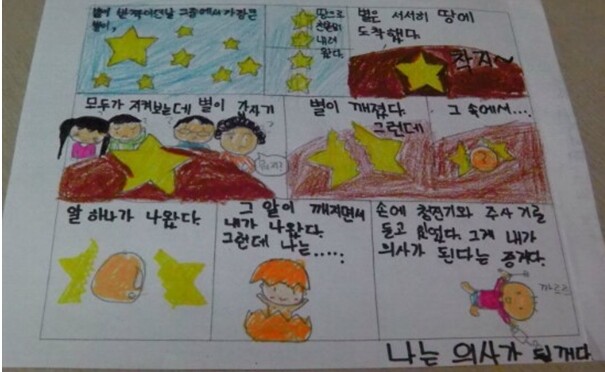 별이 반짝이던날 그중에서 가장큰
별이,
땅으로
천천히
내려
왔다.
별은 서서히 땅에
도착했다.
착지~
모두가 지켜보는데 별이 갑자기
별이 깨졌다.
그런데
그 속에서....
?
알 하나가 나왔다.
그 알이 깨지면서
내가 나왔다.
그런데 나는.....
손에 청진기와 주사기를
들고 있었다. 그게 내가
의사가 된다는 증거다.
까르르
나는 의사가 될꺼다